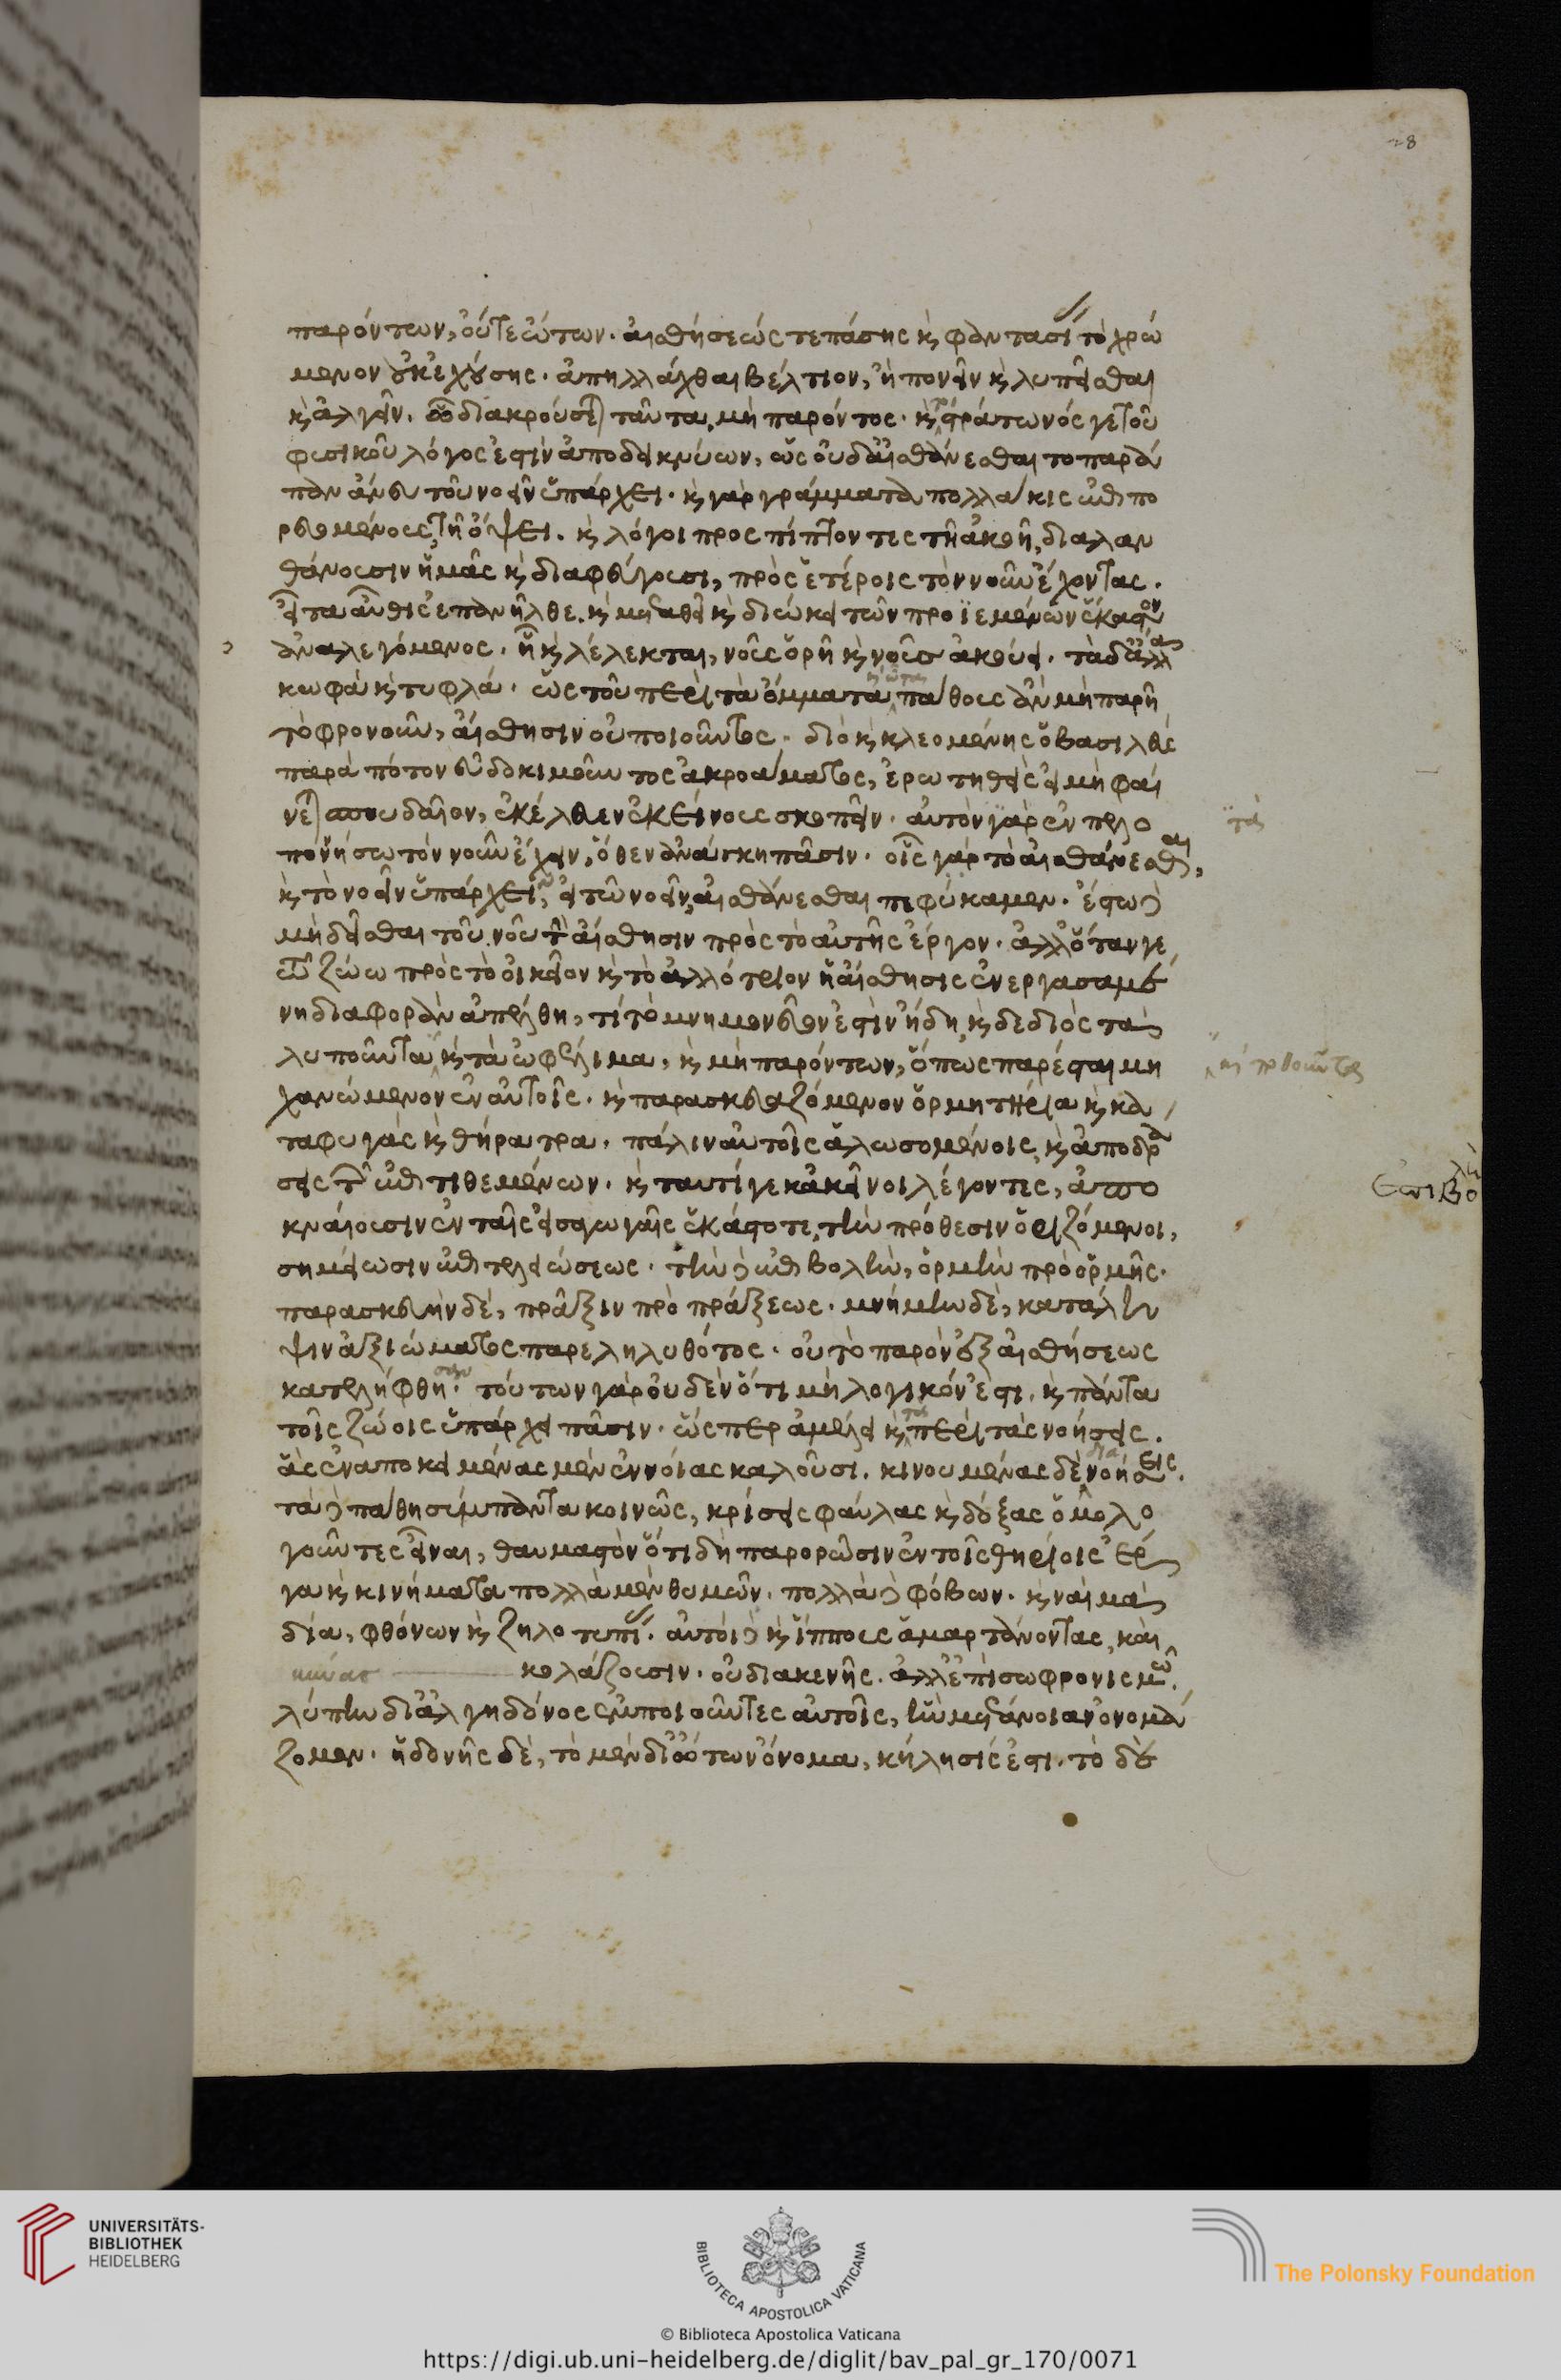 παρόντων, οὔτε ὤτων. αἰσθήσεώς τε πάσης καὶ φαντασί(ας) τὸ χρώ
μενον οὐκ ἐχούσης. ἀπηλλάχθαι βέλτιον, ἢ πονεῖν καὶ λυπεῖσθαι
καὶ ἀλγεῖν. ᾧ διακρούσε(ται) ταῦτα, μὴ παρόντος. καὶ στράτωνός γε τοῦ
φυσικοῦ λόγος ἐστὶν ἀποδεικνύων, ὡς οὐδ' αἰσθάνεσθαι τοπαρά
παν ἄνευ τοῦ νοεῖν ὑπάρχει. καὶ γὰρ γράμματα πολλάκις ἐπιπο
ρευομένους τῇ ὄψει. καὶ λόγοι προσπίπτοντες τῇ ἀκοῇ, διαλαν
θάνουσιν ἡμᾶς καὶ διαφεύγουσι, πρὸς ἑτέροις τὸν νοῦν ἔχοντας.
εἶτα αὖθις ἐπανῆλθε. καὶ μεταθεῖ καὶ διώκει τῶν προϊεμένων ἕκαστον
ἀναλεγόμενος. ᾗ καὶ λέλεκται, νοῦς ὁρῇ καὶ νοῦς ἀκούει. τὰ δ' ἄλλα
κωφὰ καὶ τυφλά. ὡς τοῦ περὶ τὰ ὄμματα καὶ ὦτα πάθους ἂν μὴ παρῇ
τὸ φρονοῦν, αἴσθησιν οὐ ποιοῦντος. διὸ καὶ κλεομένης ὁ βασιλεὺς
παρὰ πότον εὐδοκιμοῦντος ἀκροάματος, ἐρωτηθεὶς εἰ μὴ φαί
νε(ται) σπουδαῖον, ἐκέλευεν ἐκείνους σκοπεῖν. αὐτὸν γὰρ ἐν πελο
πονήσω τὸν νοῦν ἔχειν, ὅθεν ἀνάγκη πᾶσιν. οἷς γὰρ τὸ αἰσθάνεσθαι,
καὶ τὸ νοεῖν ὑπάρχειν, εἰ τῶ νοεῖν, αἰσθάνεσθαι πεφύκαμεν. ἔστω δὲ
μὴ δεῖσθαι τοῦ νοῦ τὴν αἴσθησιν πρὸς τὸ αὑτῆς ἔργον. ἀλλ' ὅταν γε
τῶ ζώω πρὸς τὸ οἰκεῖον καὶ τὸ ἀλλότριον ἡ αἴσθησις ἐνεργασαμέ
νη διαφορὰν ἀπέλθη, τί τὸ μνημονεῦον ἐστὶν ἤδη, καὶ δεδιὸς τὰ
λυποῦντα καὶ τὰ ὠφέλιμα, καὶ μὴ παρόντων, ὅπως παρέσται μη
χανώμενον ἐν αὐτοῖς. καὶ παρασκευαζόμενον ὁρμητήρια καὶ κα
ταφυγὰς καὶ θήρατρα. πάλιν αὐτοῖς ἁλωσομένοις, καὶ ἀποδρά
σεις τῶν ἐπιτιθεμένων. καὶ ταυτί γε κἀκεῖνοι λέγοντες, ἀπο
κναίουσιν ἐν ταῖς εἰσαγωγαῖς ἑκάστοτε, τὴν πρόθεσιν ὁριζόμενοι,
σημείωσιν ἐπιτελειώσεως. τὴν δὲ ἐπιβολὴν, ὁρμὴν πρὸ ὁρμῆς.
παρασκευὴν δέ, πρᾶξιν πρὸ πράξεως. μνήμην δὲ, κατάλη
ψιν ἀξιώματος παρεληλυθότος. οὗ τὸ παρὸν ἐξ αἰσθήσεως
κατελήφθη. τούτων γὰρ οὐδὲν ὅτι μὴ λογικόν ἐστι. καὶ πάντα
τοῖς ζώοις ὑπάρχει πᾶσιν. ὥσπερ ἀμέλει καὶ περὶ τὰς νοήσεις.
ἃς ἐναποκειμένας μὲν ἐννοίας καλοῦσι. κινουμένας δὲ, νοήσεις.
τὰ δὲ πάθη σύμπαντα κοινῶς, κρίσεις φαύλας καὶ δόξας ὁμολο
γοῦντες εἶναι, θαυμαστὸν ὅτι δὴ παρορῶσιν ἐν τοῖς θηρίοις ἔρ
γα καὶ κινήματα πολλὰ μὲν θυμῶν. πολλὰ δὲ φόβων. καὶ ναὶ μὰ
δία, φθόνων καὶ ζηλοτυπι(ῶν). αὐτοὶ δὲ καὶ ἵππους ἁμαρτάνοντας, καὶ
κύνας κολάζουσιν. οὐ διακενῆς. ἀλλ' ἐπὶ σωφρονισμῶ.
λύπην δι' ἀλγηδόνος ἐμποιοῦντες αὐτοῖς, ἣν μετάνοιαν ὀνομά
ζομεν. ἡδονῆς δέ, τὸ μὲν δι' ὤτων ὄνομα, κήλησίς ἐστι. τὸ δὲ
τὰ
καὶ ποθοῦντες
ἐπιβολὴ
UNIVERSITÄTS-
BIBLIOTHEK
HEIDELBERG
BIBLIOTECA APOSTOLICA VATICANA
The Polonsky Foundation
© Biblioteca Apostolica Vaticana
https://digi.ub.uni-heidelberg.de/diglit/bav_pal_gr_170/0071